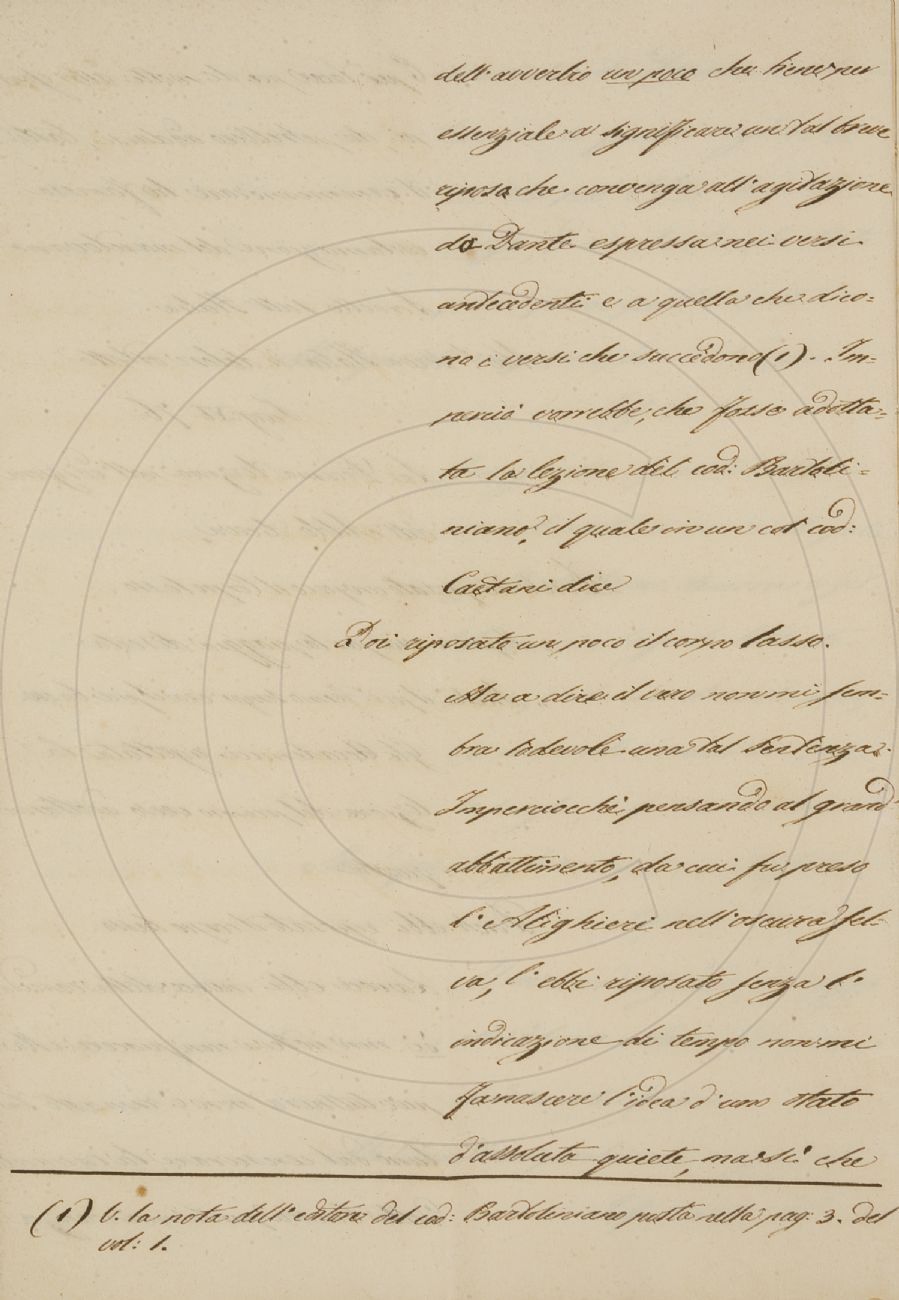 dell'avverbio un poco che tiene per
essenziale a significare un tal breve
riposo che convenga all'agitazione
da Dante espressa nei versi
antecedenti e a quella che dico=
no i versi che succedono (1). Im=
perciò vorrebbe, che fosse adotta=
ta la lezione del cod: Bartoli=
niano, il quale in un col cod:
Caetani dice
Poi riposato un poco il corpo lasso.
Ma a dire il vero non mi sem=
bra lodevole una tal sentenza.
Imperciocchè pensando al grand'
abbattimento, da cui fu preso
l'Alighieri nell'oscura sel=
va, l'ebbi riposato senza l'
indicazione di tempo non mi
fa nascere l'idea d'uno stato
d'assoluta quiete, ma sì che
(1) V. la nota dell'editore del cod: Bartoliniano posta nella pag: 3. del
vol: 1.